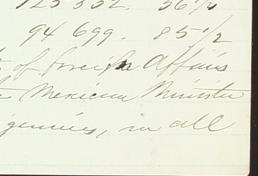 123 332. 36 1/2
94 699. 85 1/2
of Foreign Affairs
Mexican Minister
gencies, in all